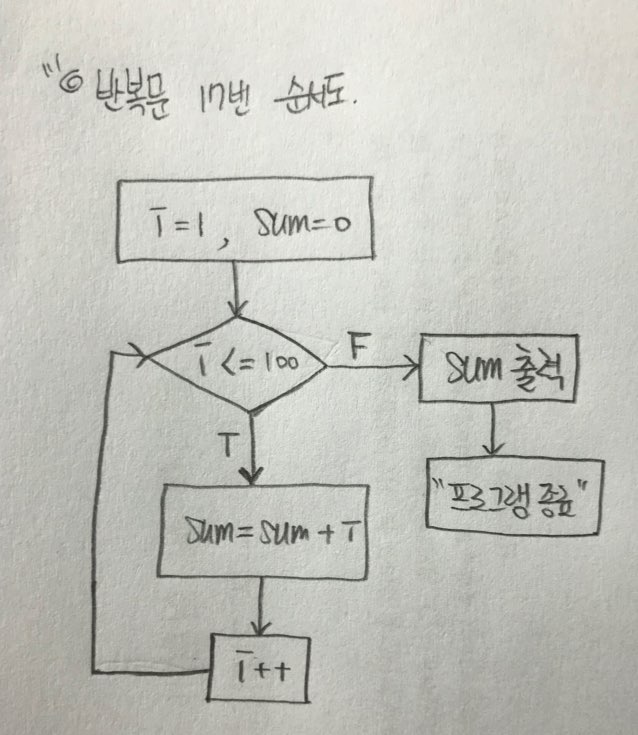 반복문 17번 순서도.
i=1, sum=0
i<=100
F
sum 출력
T
"프로그램 종료"
sum=sum+i
i++